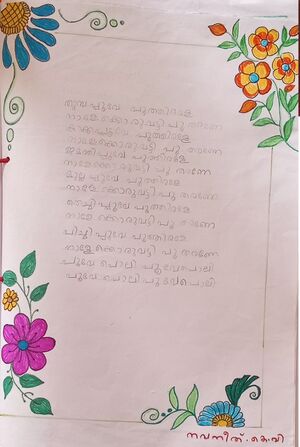 തുമ്പപ്പൂവേ പൂത്തിരളേ
നാളേക്കൊരുവട്ടി പൂ തരണേ
കാക്കപ്പൂവേ പൂത്തിരളേ
നാളേക്കൊരുവട്ടി പൂ തരണേ
മുക്കുറ്റിപ്പൂവേ പൂത്തിരളേ
നാളേക്കൊരുവട്ടി പൂ തരണേ
മുല്ലപ്പൂവേ പൂത്തിരളേ
നാളേക്കൊരുവട്ടി പൂ തരണേ
തെച്ചിപ്പൂവേ പൂത്തിരളേ
നാളേക്കൊരുവട്ടി പൂ തരണേ
പിച്ചിപ്പൂവേ പൂത്തിരളേ
നാളേക്കൊരുവട്ടി പൂ തരണേ
പൂവേ പൊലി പൂവേപൊലി
പൂവേ പൊലി പൂവേപൊലി
നവനീത്.കെ.വി